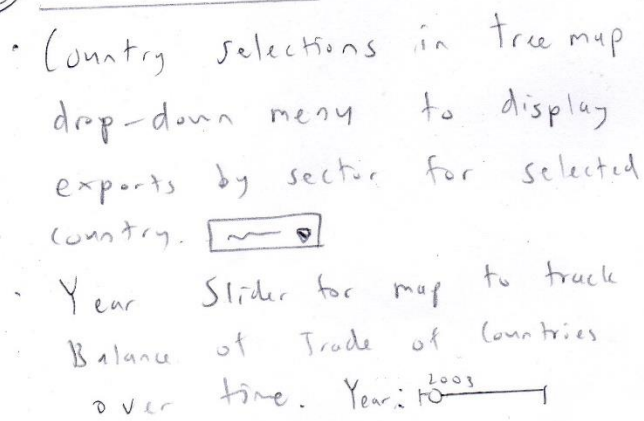 • Country selections in tree map
drop-down menu to display
exports by sector for selected
country.
• Year Slider for map to track
Balance of Trade of Countries
over time. Year: 2003